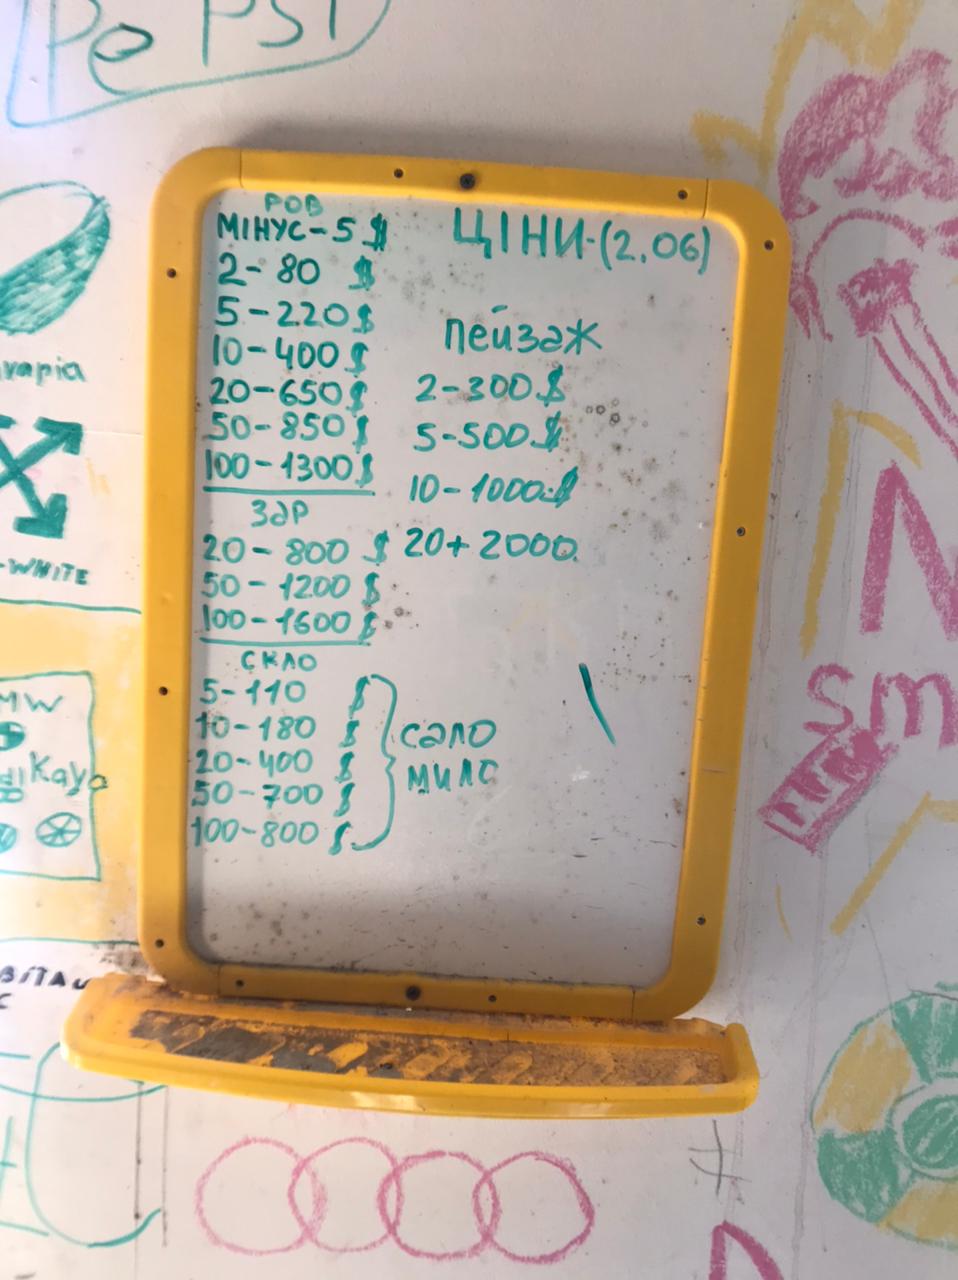 Pe PSI
РОВ
МІНУС-5$
2-80 $
5-220$
10-400$
20-650$
50-850$
100-1300$
ЗАР
20-800 $
50-1200$
100-1600$
СКЛО
5-110 $
10-180 $
20-400 $
50-700 $
100-800 $
сало
мило
ЦІНИ-(2.06)
Пейзаж
2-300$
5-500$
10-1000$
20+2000
-WHITE
MW
Kaya
Sm